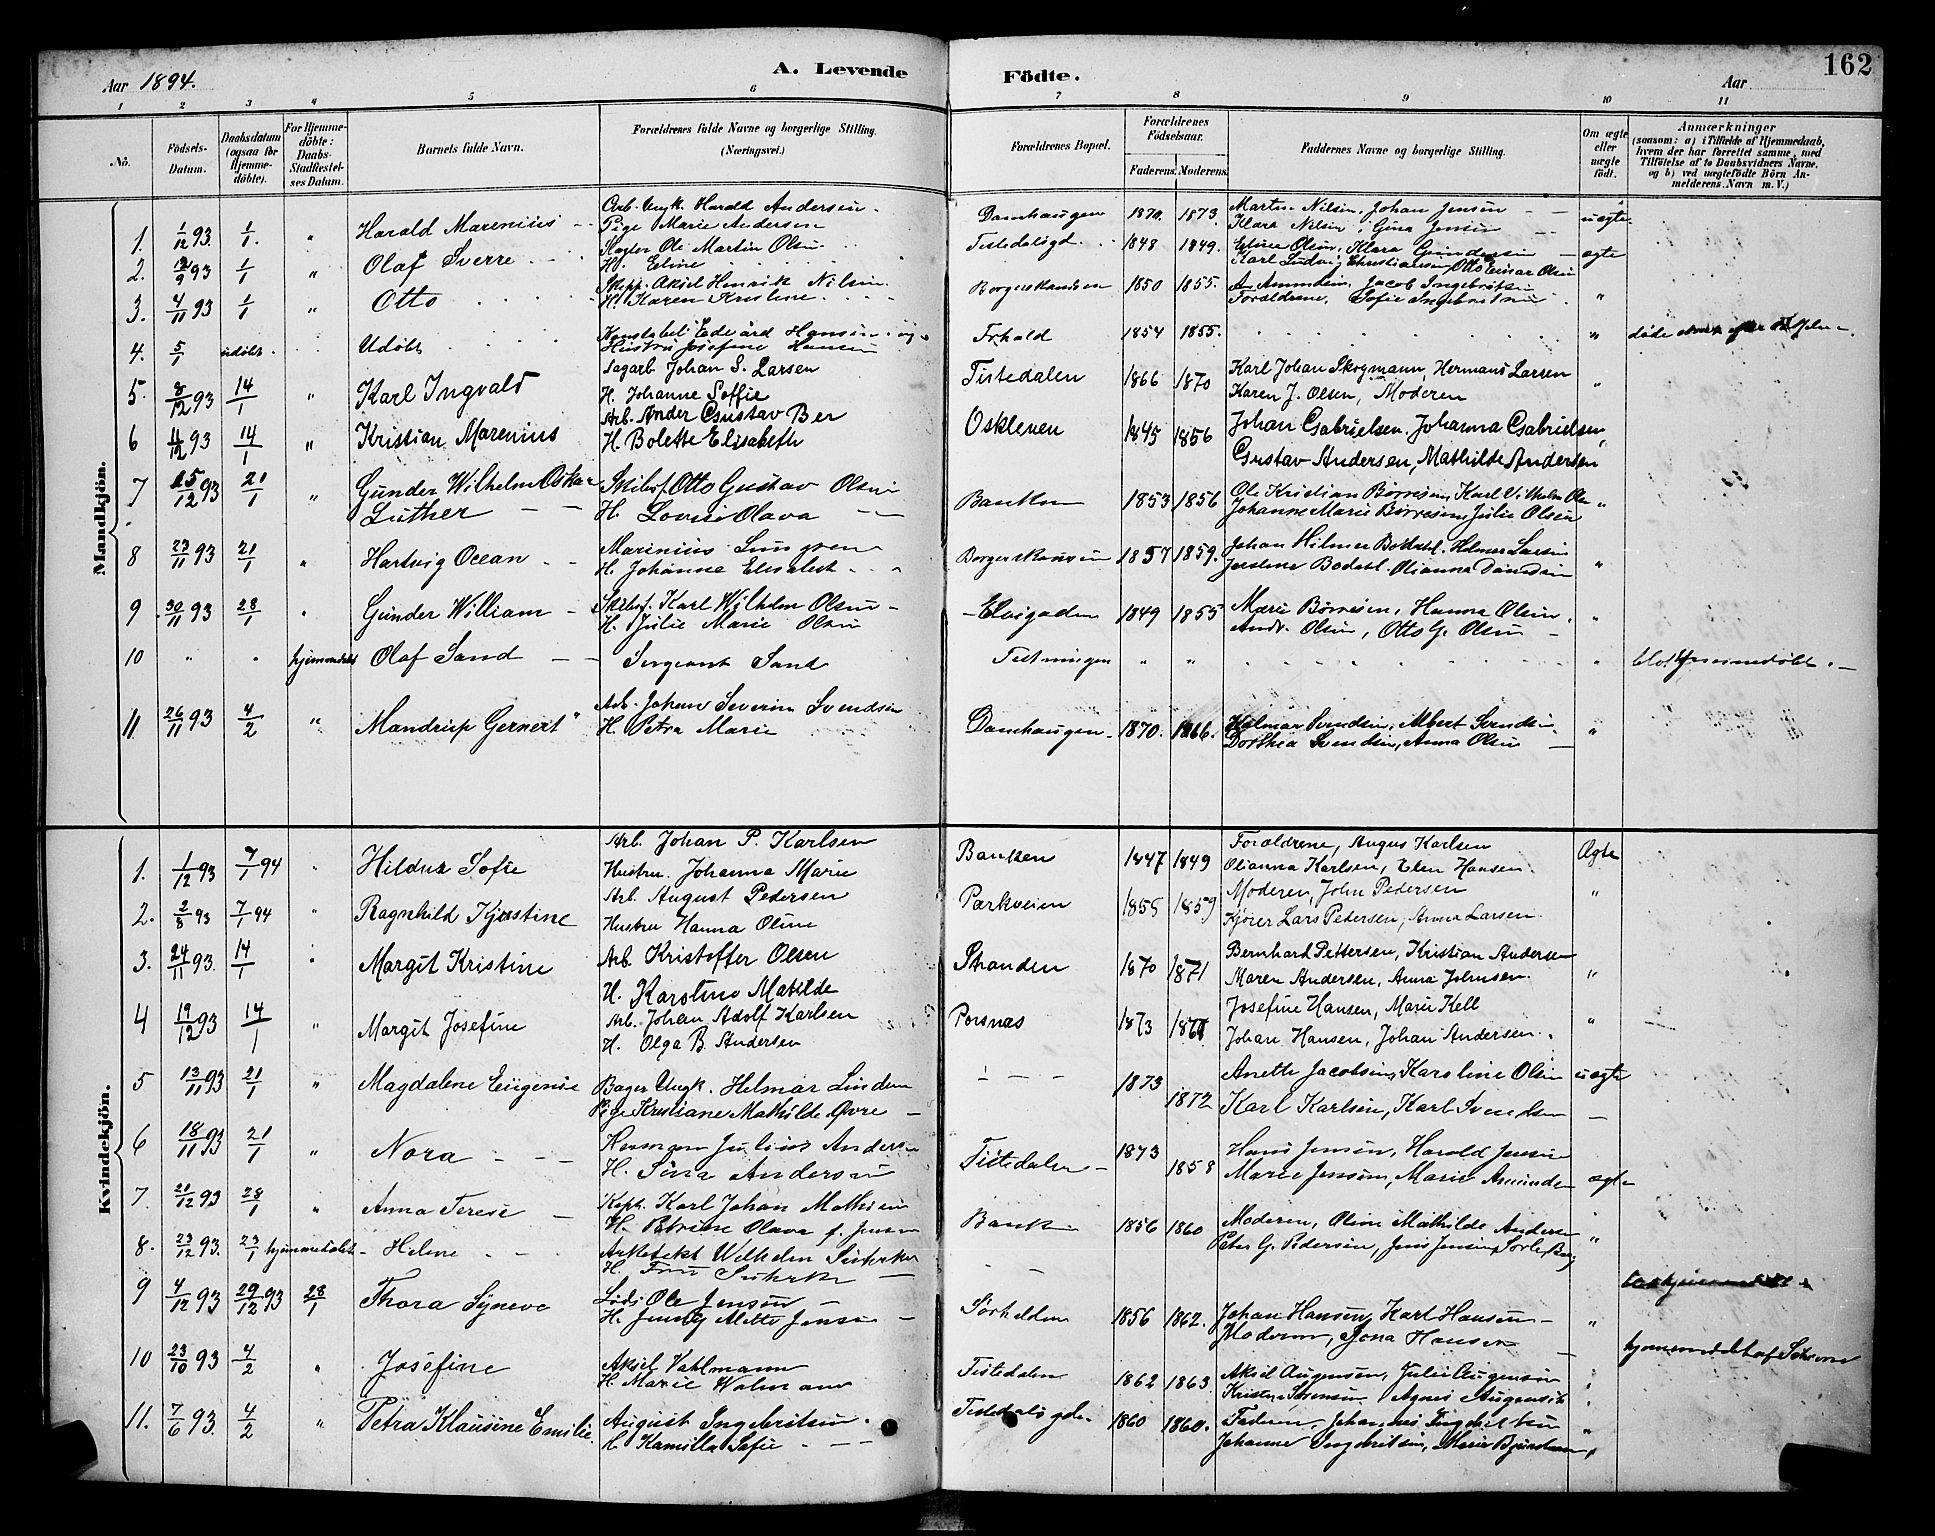 Aar 1894.
A. Levende Födte.
Aar
162
1 2 3 4 5 6 7 8 9 10 11
No.
Födsels-Datum.
Daabsdatum (ogsaa for Hjemme-döbte).
For Hjemme-döbte: Daabs-Stadfæstel-ses Datum.
Barnets fulde Navn.
Forældrenes fulde Navne og borgerlige Stilling. (Næringsvei.)
Forældrenes Bopæl.
Forældrenes Födselsaar.
Faderens. Moderens.
Faddernes Navne og borgerlige Stilling.
Om ægte eller uægte födt.
Anmærkninger
(saasom: a) i Tilfælde af Hjemmedaab, hvem der har forrettet samme, med Tilföielse af to Daabsvidners Navne, og b) ved uægtefödte Börn An-melderens Navn m. V.)
Mandkjön.
1. 1/12 93 1/1. " Harald Marenius Arb. Ungk. Harald Andersen Damhaugen 1870. 1873. Martin Nilsen, Johan Jensen uægte
Pige Marie Andersen Klara Nilsen, Gina Jensen
2. 12/9 93 1/1 " Olaf Sverre Ole Martin Olsen Tistedalsgd. 1848 1849. Eline Olsen, Klara Gundersen ægte
H. Eline Karl Ludvig Christiansen, Otto Einar Olsen
3. 4/11 93 1/1 " Otto Skipp. Aksel Henrik Nilsen Borgerskandsen 1850 1855. A. Amundsen, Jacob Ingebritsen "
H. Karen Kristine Forældrene, Sofie Ingebritsen
4. 5/1 udöbt Udöbt Konstabel Edevard Hansen og Frhald 1854 1855. " döde
Hustru Josefine Hansen
5. 8/12 93 14/1 " Karl Ingvald Sagarb. Johan S. Larsen Tistedalen 1866 1870 Karl Johan Skogmann, Hermans Larsen "
H. Johanne Soffie Karen J. Olsen, Moderen
6 11/12 93 14/1 " Kristian Marenius Arb. Ander Gustav Ber Oskleven 1845 1856 Johan Gabrielsen, Johanna Gabrielsen "
H. Bolette Elisabeth Gustav Andersen, Mathilde Andersen
7 25/12 93 21/1 " Gunder Wilhelm Oskar Skibsf. Otto Gustav Olsen Banken 1853 1856 Ole Kristian Børresen, Karl Vilhelm Ole "
Luther H. Lovise Olava Johanne Marie Børresen, Julie Olsen
8 23/11 93 21/1 " Hartvig Ocean Marinius Lungren Borgerskansen 1857 1859. Johan Hilmer Bodahl, Helmer Larsen "
H. Johanne Elisabet Bodahl. Olianna Danielsen
9 30/11 93 28/1 " Gunder William Skibsf. Karl Wilhelm Olsen Elvigaden 1849 1855 Marie Børresen, Hanna Olsen "
H. Julie Marie Olsen Andr. Olsen, Otto G. Olsen
10 " " hjemmedøbt Olaf Sand Sergeant Sand Festningen " " " blot hjemmedøbt
11 26/11 93 4/2 " Mandrup Gernert Arb. Johan Severin Svendsen Damhaugen 1870. 1866. Hjalmar Svendsen, Albert Svendsen "
H. Petra Marie Dorthea Svendsen, Anna Olsen
Kvindekjön.
1. 1/12 93 7/1 94 " Hildur Sofie Arb. Johan P. Karlsen Banken 1847 1849 Forældrene, August Karlsen Ægte
Hustru Johanna Marie Olianna Karlsen, Elen Hansen
2. 2/8 93 7/1 94 " Ragnhild Kjerstine Arb. August Pedersen Parkveien 1855 1859 Moderen, John Pedersen "
Hustru Hanna Oline Kjörer Lars Petersen, Anna Larsen
3. 24/11 93. 14/1 " Margit Kristine Arb. Kristoffer Olsen Stranden 1870 1871 Bernhard Pettersen, Kristian Andersen
H. Karoline Matilde Maren Andersen, Anna Johnsen. "
4 19/12 93 14/1 " Margit Josefine Arb. Johan Adolf Karlsen Porsnæs 1873 1871 Josefine Hansen, Marie Kell "
H. Olga B. Andersen Johan Hansen, Johan Andersen.
5 13/11 93 21/1 " Magdalene Eugenie Bager Ungk. Helmar Linden 1873 Anette Jacobsen, Karoline Olsen uægte
Pige Kristiane Mathilde Øvre 1872 Karl Karlsen, Karl Svendsen
6 18/11 93 21/1 " Nora Herman Julius Andersen Tistedalen 1873 Hans Jensen, Harald Jensen
H. Sina Andersen 1858 Marie Jensen, Marie Amundsen ægte
7. 21/12 93 28/1 " Anna Terese Kapt. Karl Johan Mathisen Banken 1856 1860 Moderen, Oline Mathilde Andersen "
H. Petrine Olava f. Jensen Peter G. Pedersen, Jens Jensen
8. 23/12 93. 23/1 hjemmedøbt Helene Arkitekt Wilhelm Suhrke
H. Fru Suhrke
9 4/12 93 29/12 93 28/1 Thora Syneve Lods Ole Jensen Sørhelden 1856 1862. Johan Hansen, Karl Hansen "
H. Jenny Mette Jensen Moderen, Jona Hansen
10 23/10 93 4/2 " Josefine Aksel Vahlmann Tistedalen 1862 1863 Aksel Augensen, Julie Augensen hjemmedöbt af
H. Marie Walmann Kristine Sørensen, Agnes Augensen
11. 7/6 93. 4/2 " Petra Klausine Emilie August Ingebritsen Tistedalsgde 1860 1860. Faderen, Johannes Ingebritsen "
H. Kamilla Sofie Johanne Ingebritsen, Marie